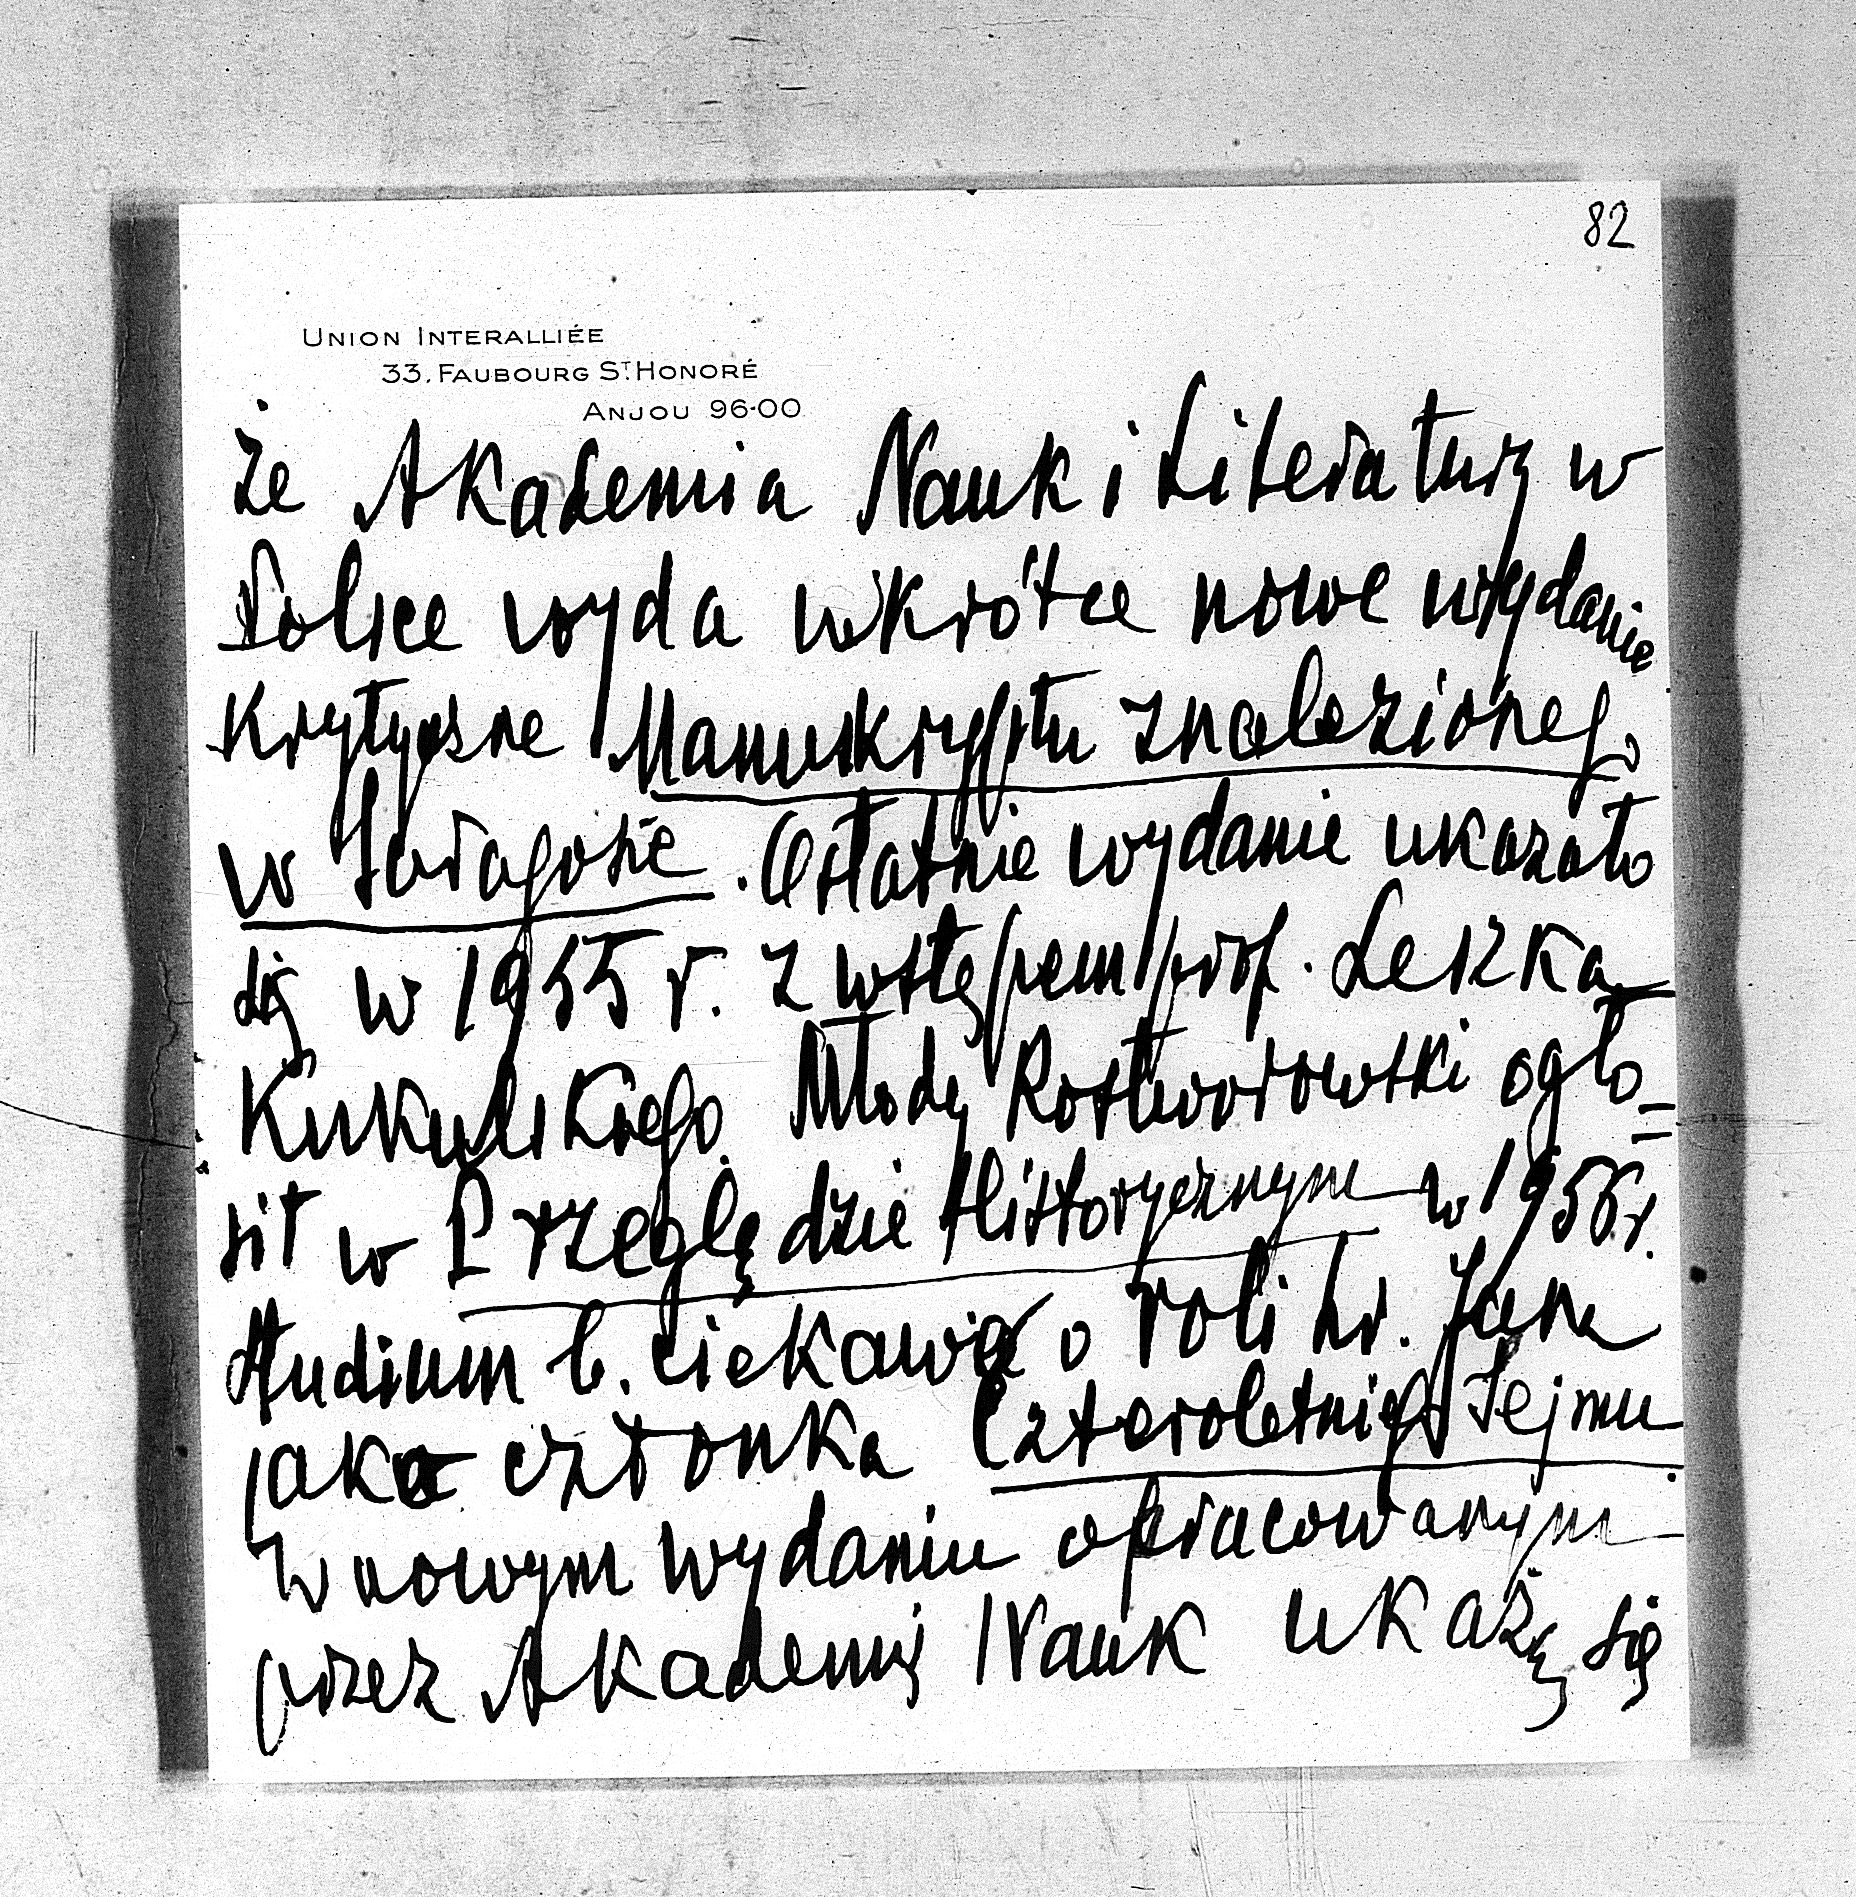 82
UNION INTERALLIÉE
33. FAUBOURG ST. HONORÉ
ANJOU 96-00
że Akademia Nauk i Literatury w
Polsce wyda wkrótce nowe wydanie
krytyczne Manuskryptu znalezionego
w Saragosie. Ostatnie wydanie ukazało
się w 1955 r. z wstępem prof. Leszka
Kukulskiego. Młody Rostworowski ogło=
sił w Przeglądzie Historycznym w 1956 r.
studium b. ciekawe o roli hr. Jana
jako członka Czteroletniego Sejmu.
W nowym wydaniu opracowanym
przez Akademię Nauk ukażą się